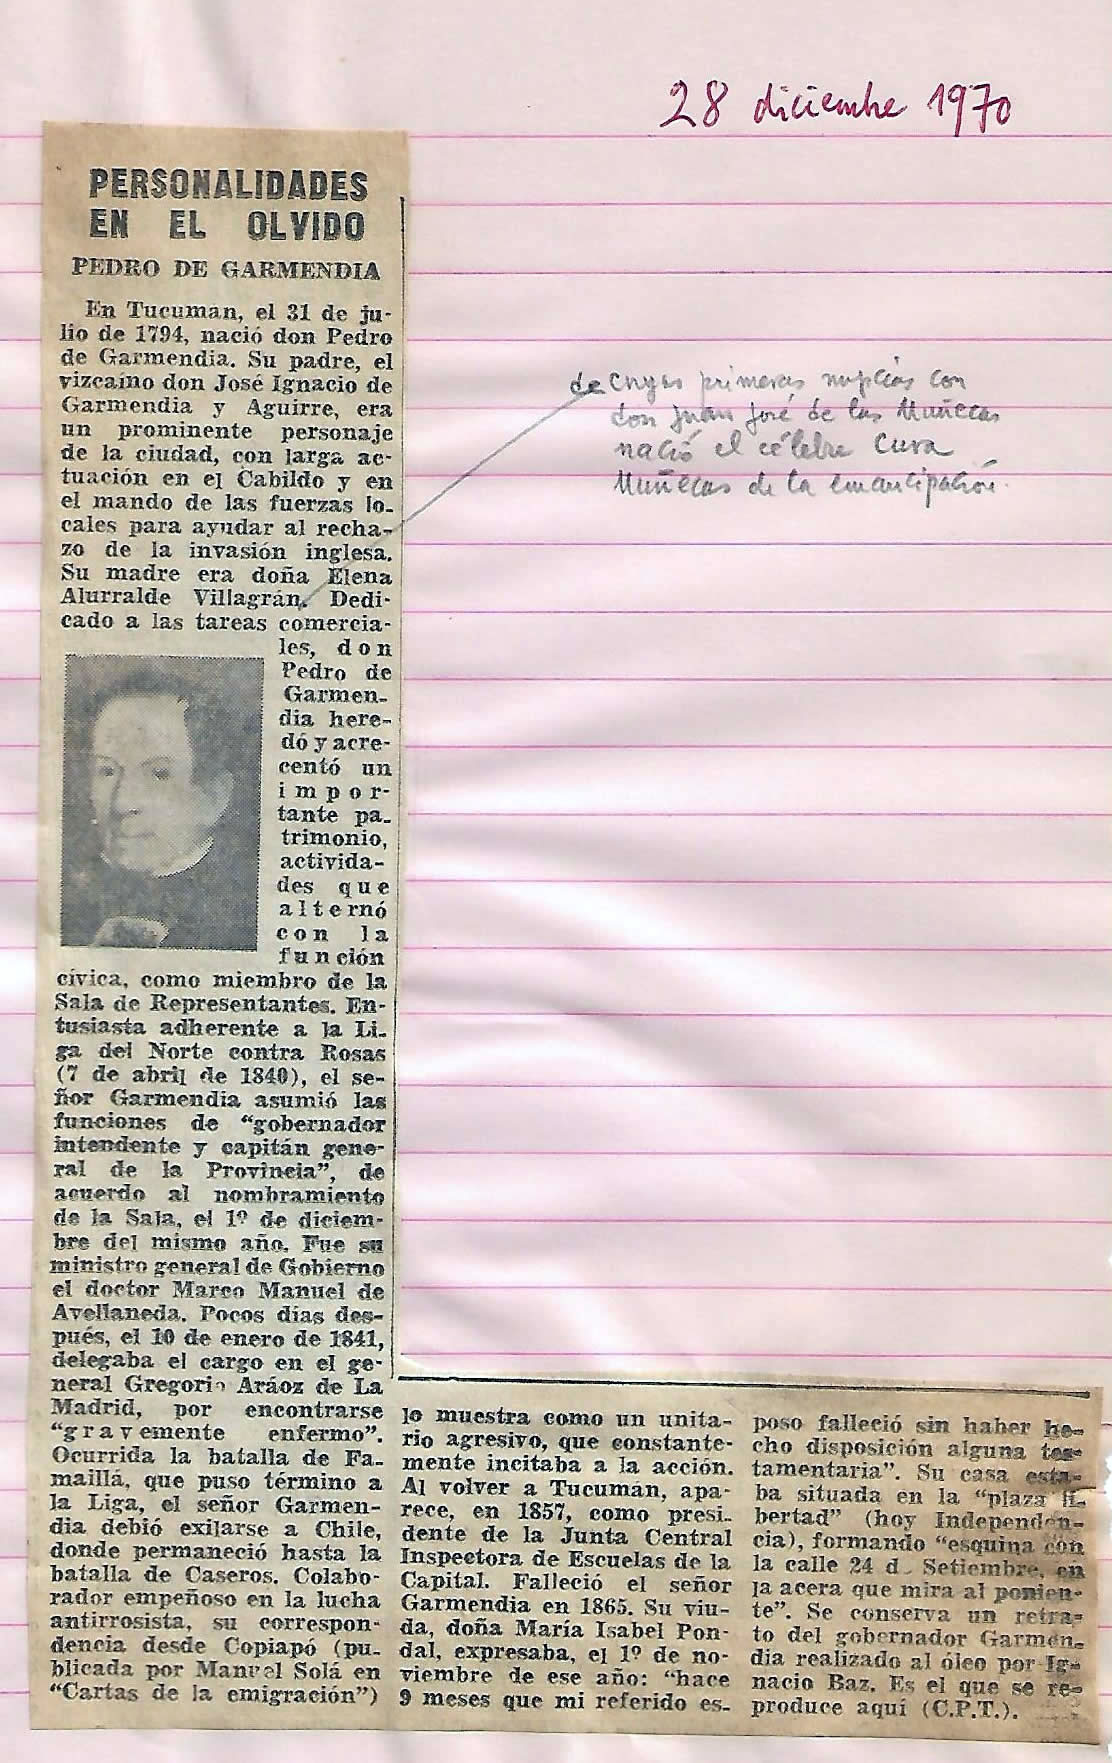 28 diciembre 1970
PERSONALIDADES
EN EL OLVIDO
PEDRO DE GARMENDIA
En Tucuman, el 31 de ju-
lio de 1794, nació don Pedro
de Garmendia. Su padre, el
vizcaíno don José Ignacio de
Garmendia y Aguirre, era
un prominente personaje
de la ciudad, con larga ac-
tuación en el Cabildo y en
el mando de las fuerzas lo-
cales para ayudar al recha-
zo de la invasión inglesa.
Su madre era doña Elena
Alurralde Villagrán. Dedi-
cado a las tareas comercia-
les, don
Pedro de
Garmen-
dia here-
dó y acre-
centó un
impor-
tante pa-
trimonio,
activida-
des que
alternó
con la
función
cívica, como miembro de la
Sala de Representantes. En-
tusiasta adherente a la Li-
ga del Norte contra Rosas
(7 de abril de 1840), el se-
ñor Garmendia asumió las
funciones de "gobernador
intendente y capitán gene-
ral de la Provincia", de
acuerdo al nombramiento
de la Sala, el 1º de diciem-
bre del mismo año. Fue su
ministro general de Gobierno
el doctor Marco Manuel de
Avellaneda. Pocos días des-
pués, el 10 de enero de 1841,
delegaba el cargo en el ge-
neral Gregorio Aráoz de La
Madrid, por encontrarse
"gravemente enfermo".
Ocurrida la batalla de Fa-
maillá, que puso término a
la Liga, el señor Garmen-
dia debió exilarse a Chile,
donde permaneció hasta la
batalla de Caseros. Colabo-
rador empeñoso en la lucha
antirrosista, su correspon-
dencia desde Copiapó (pu-
blicada por Manuel Solá en
"Cartas de la emigración")
lo muestra como un unita-
rio agresivo, que constante-
mente incitaba a la acción.
Al volver a Tucumán, apa-
rece, en 1857, como presi-
dente de la Junta Central
Inspectora de Escuelas de la
Capital. Falleció el señor
Garmendia en 1865. Su viu-
da, doña María Isabel Pon-
dal, expresaba, el 1º de no-
viembre de ese año: "hace
9 meses que mi referido es-
poso falleció sin haber he-
cho disposición alguna tes-
tamentaria". Su casa esta-
ba situada en la "plaza li-
bertad" (hoy Independen-
cia), formando "esquina con
la calle 24 d_ Setiembre, en
la acera que mira al ponien-
te". Se conserva un retra-
to del gobernador Garmen-
dia realizado al óleo por Ig-
nacio Baz. Es el que se re-
produce aquí (C.P.T.).
de cuyas primeras nupcias con
don Juan José de las Muñecas
nació el célebre Cura
Muñecas de la emancipación.